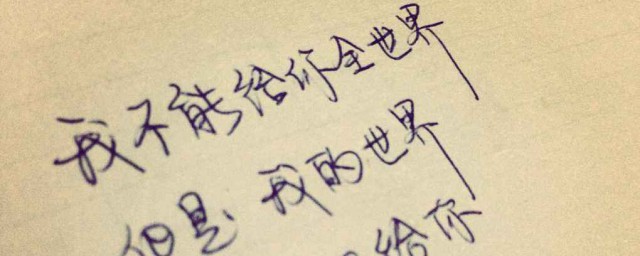 我不能给你全世界
但是我的世界
给你